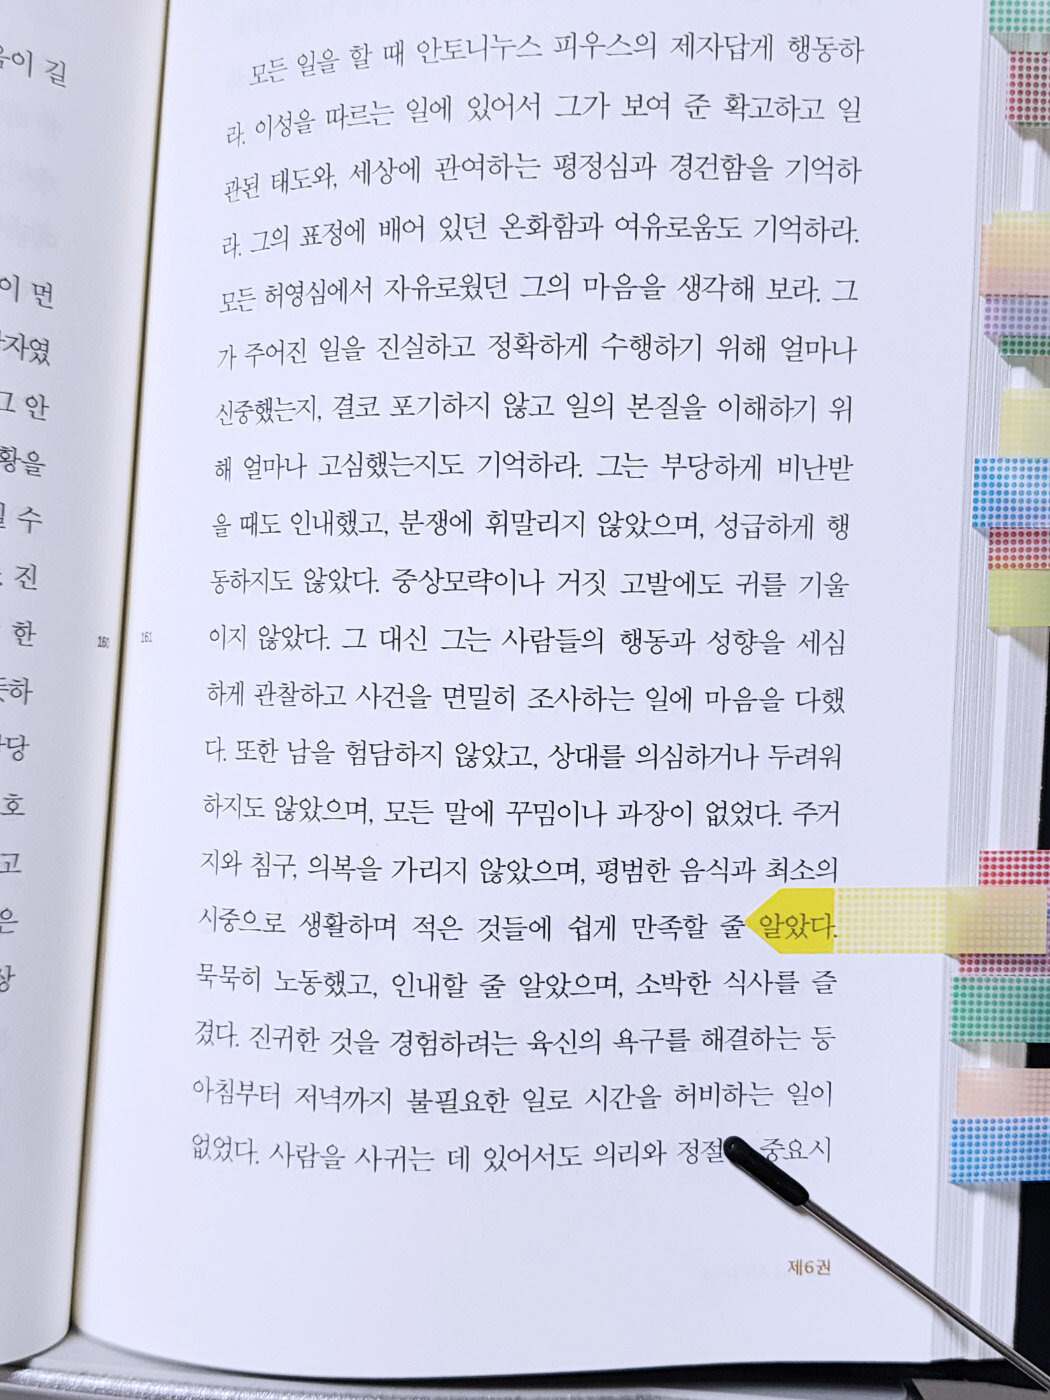 음이 길
이 먼
자였
그 안
황을
수
진
한
하
당
호
고
은
상
160
161
모든 일을 할 때 안토니누스 피우스의 제자답게 행동하
라. 이성을 따르는 일에 있어서 그가 보여 준 확고하고 일
관된 태도와, 세상에 관여하는 평정심과 경건함을 기억하
라. 그의 표정에 배어 있던 온화함과 여유로움도 기억하라.
모든 허영심에서 자유로웠던 그의 마음을 생각해 보라. 그
가 주어진 일을 진실하고 정확하게 수행하기 위해 얼마나
신중했는지, 결코 포기하지 않고 일의 본질을 이해하기 위
해 얼마나 고심했는지도 기억하라. 그는 부당하게 비난받
을 때도 인내했고, 분쟁에 휘말리지 않았으며, 성급하게 행
동하지도 않았다. 중상모략이나 거짓 고발에도 귀를 기울
이지 않았다. 그 대신 그는 사람들의 행동과 성향을 세심
하게 관찰하고 사건을 면밀히 조사하는 일에 마음을 다했
다. 또한 남을 험담하지 않았고, 상대를 의심하거나 두려워
하지도 않았으며, 모든 말에 꾸밈이나 과장이 없었다. 주거
지와 침구, 의복을 가리지 않았으며, 평범한 음식과 최소의
시중으로 생활하며 적은 것들에 쉽게 만족할 줄 알았다.
묵묵히 노동했고, 인내할 줄 알았으며, 소박한 식사를 즐
겼다. 진귀한 것을 경험하려는 육신의 욕구를 해결하는 등
아침부터 저녁까지 불필요한 일로 시간을 허비하는 일이
없었다. 사람을 사귀는 데 있어서도 의리와 정절 중요시
제6권